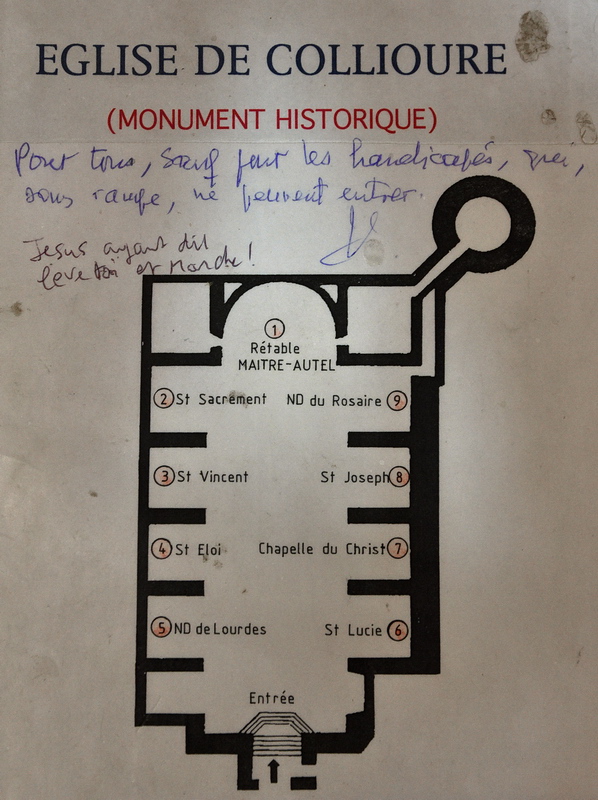 EGLISE DE COLLIOURE
(MONUMENT HISTORIQUE)
Pour tous, sauf pour les handicapés, qui,
sans rampe, ne peuvent entrer.
Jesus ayant dit
leve toi et Marche!
1
Rétable
MAITRE-AUTEL
2 St Sacrement ND du Rosaire 9
3 St Vincent St Joseph 8
4 St Eloi Chapelle du Christ 7
5 ND de Lourdes St Lucie 6
Entrée